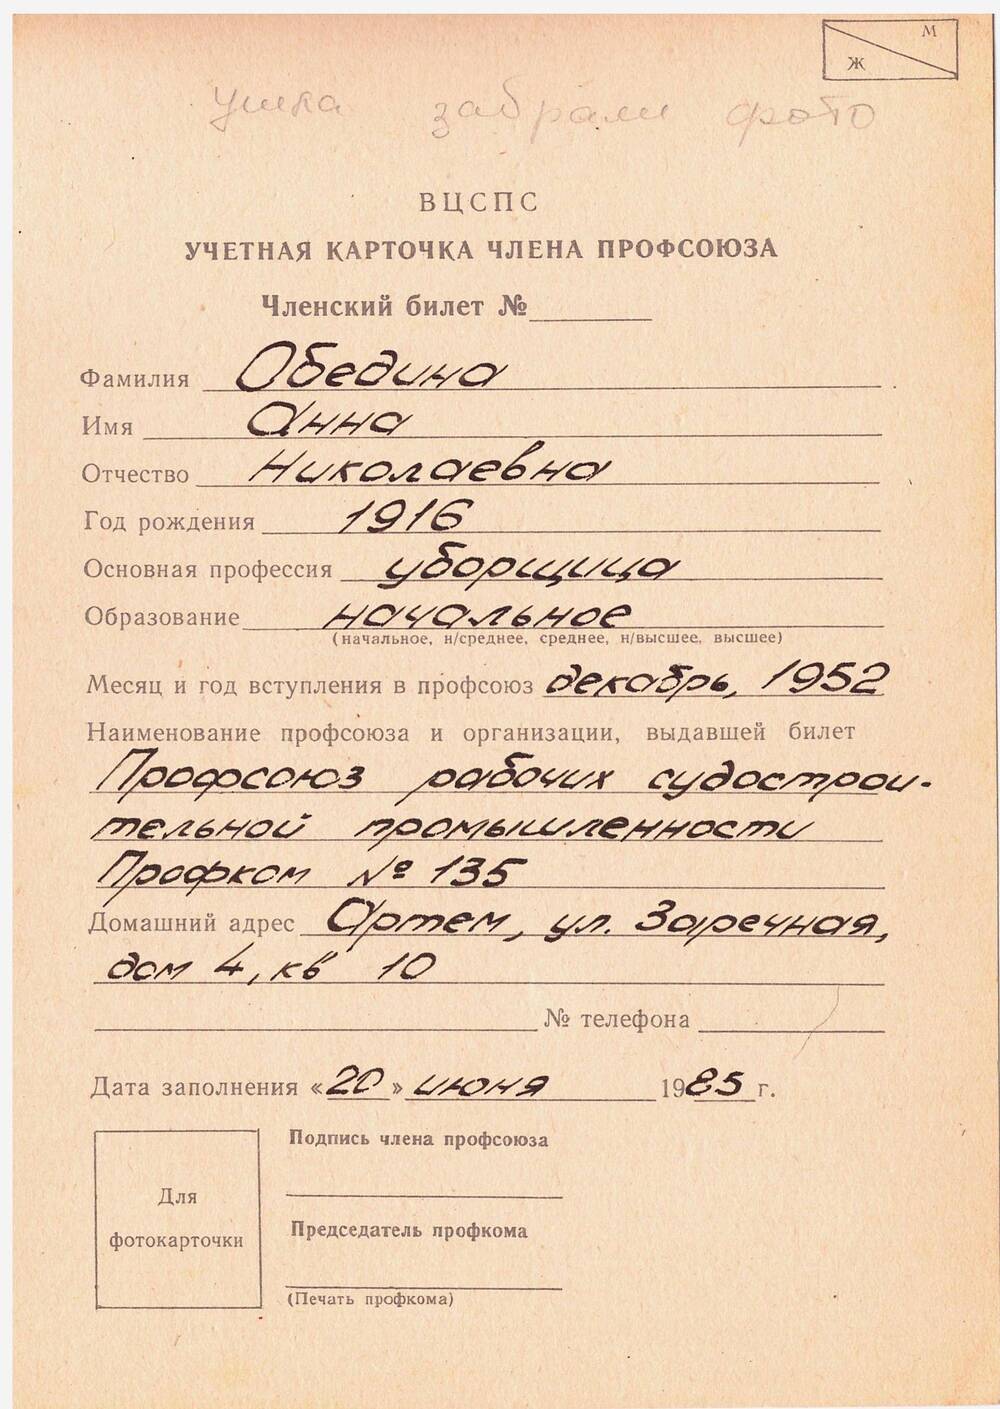 М
Ж
забрали фото
ВЦСПС
УЧЕТНАЯ КАРТОЧКА ЧЛЕНА ПРОФСОЮЗА
Членский билет №
Фамилия Обедина
Имя Анна
Отчество Николаевна
Год рождения 1916
Основная профессия уборщица
Образование начальное
(начальное, н/среднее, среднее, н/высшее, высшее)
Месяц и год вступления в профсоюз декабрь, 1952
Наименование профсоюза и организации, выдавшей билет
Профсоюз рабочих судострои-
тельной промышленности
Профком № 135
Домашний адрес Артем, ул. Заречная,
дом 4, кв 10
№ телефона
Дата заполнения «20» июня 1985 г.
Подпись члена профсоюза
Для
фотокарточки
Председатель профкома
(Печать профкома)